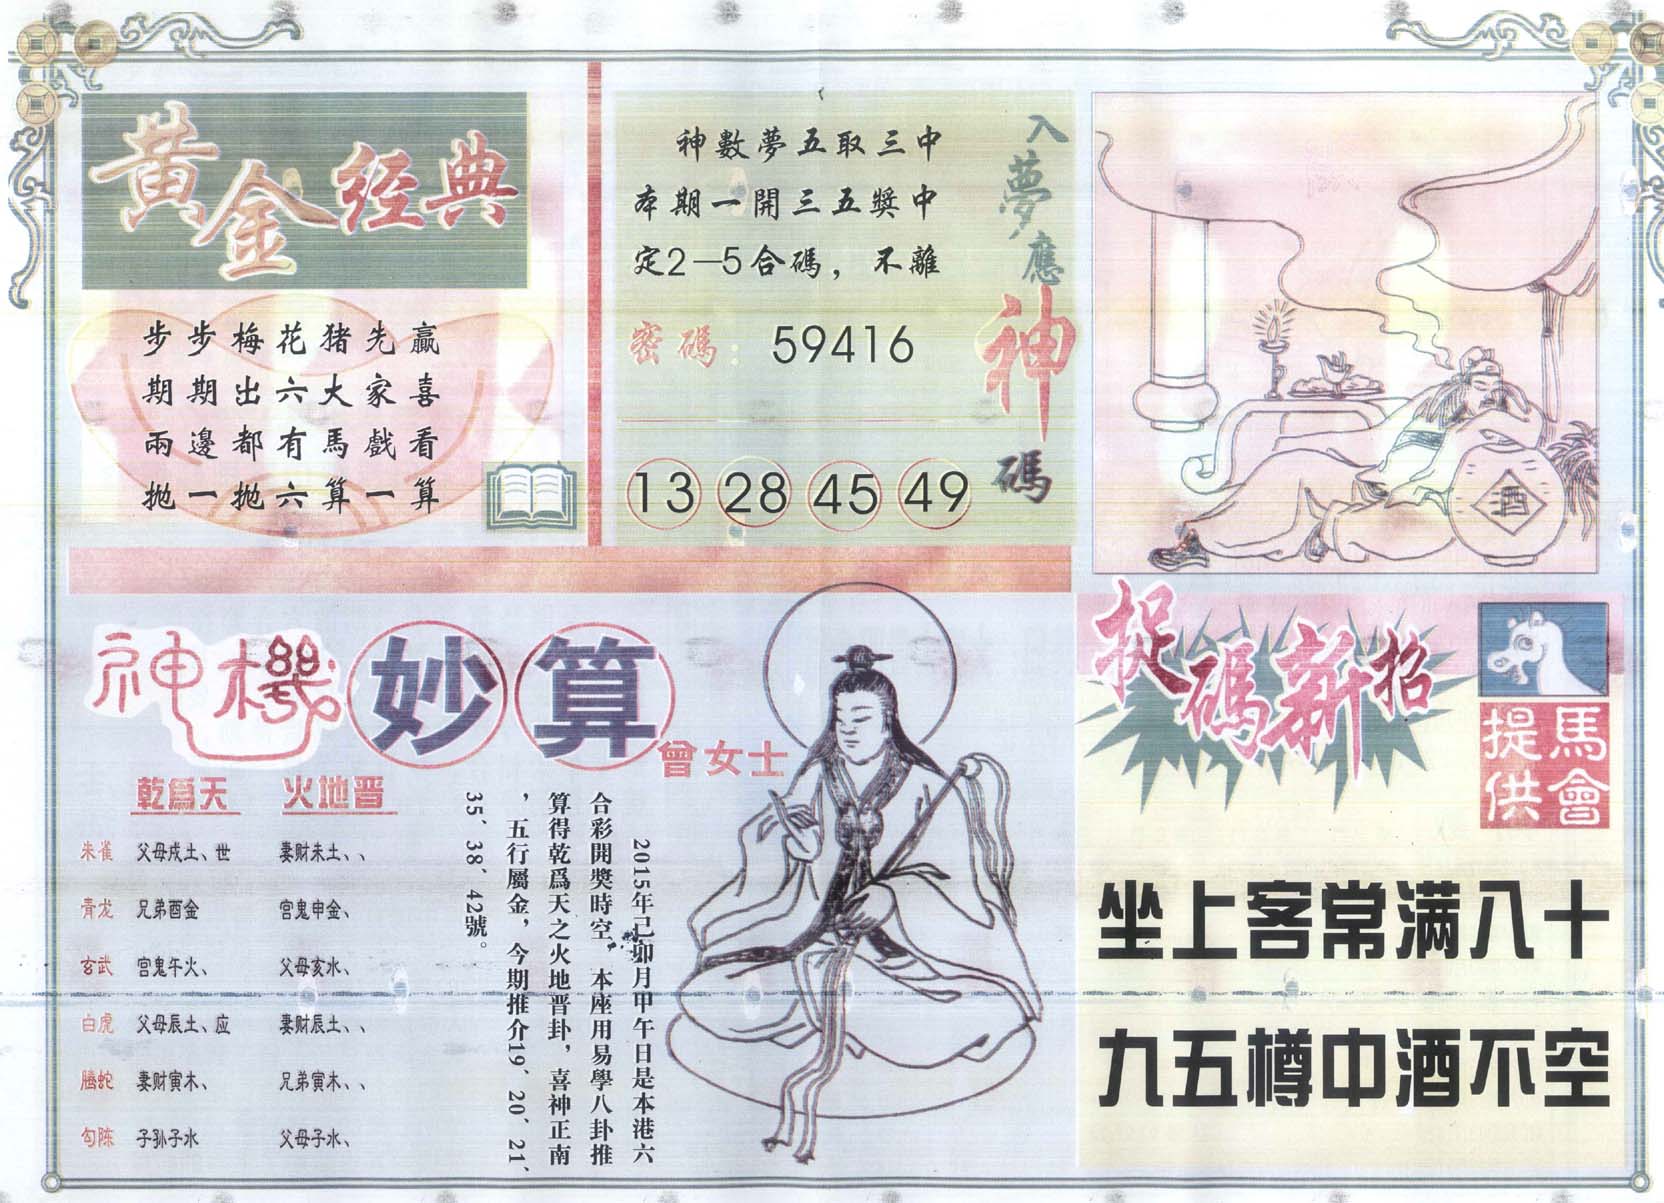 黄金经典
步步梅花猪先贏
期期出六大家喜
兩邊都有馬戲看
抛一抛六算一算
入夢應神碼
神數夢五取三中
本期一開三五獎中
定2—5合碼，不離
密碼：59416
13 28 45 49
酒
神機妙算
曾女士
乾爲天 火地晋
朱雀 父母戍土、世 妻财未土、、
青龙 兄弟酉金 宫鬼申金、
玄武 宫鬼午火、 父母亥水、
白虎 父母辰土、应 妻财辰土、、
腾蛇 妻财寅木、 兄弟寅未、、
勾陈 子孙子水 父母子水、
2015年己卯月甲午日是本港六
合彩開獎時空，本座用易學八卦推
算得乾爲天之火地晋卦，喜神正南
，五行屬金，今期推介19、20、21、
35、38、42號。
捉碼新招
馬會提供
坐上客常满八十
九五樽中酒不空